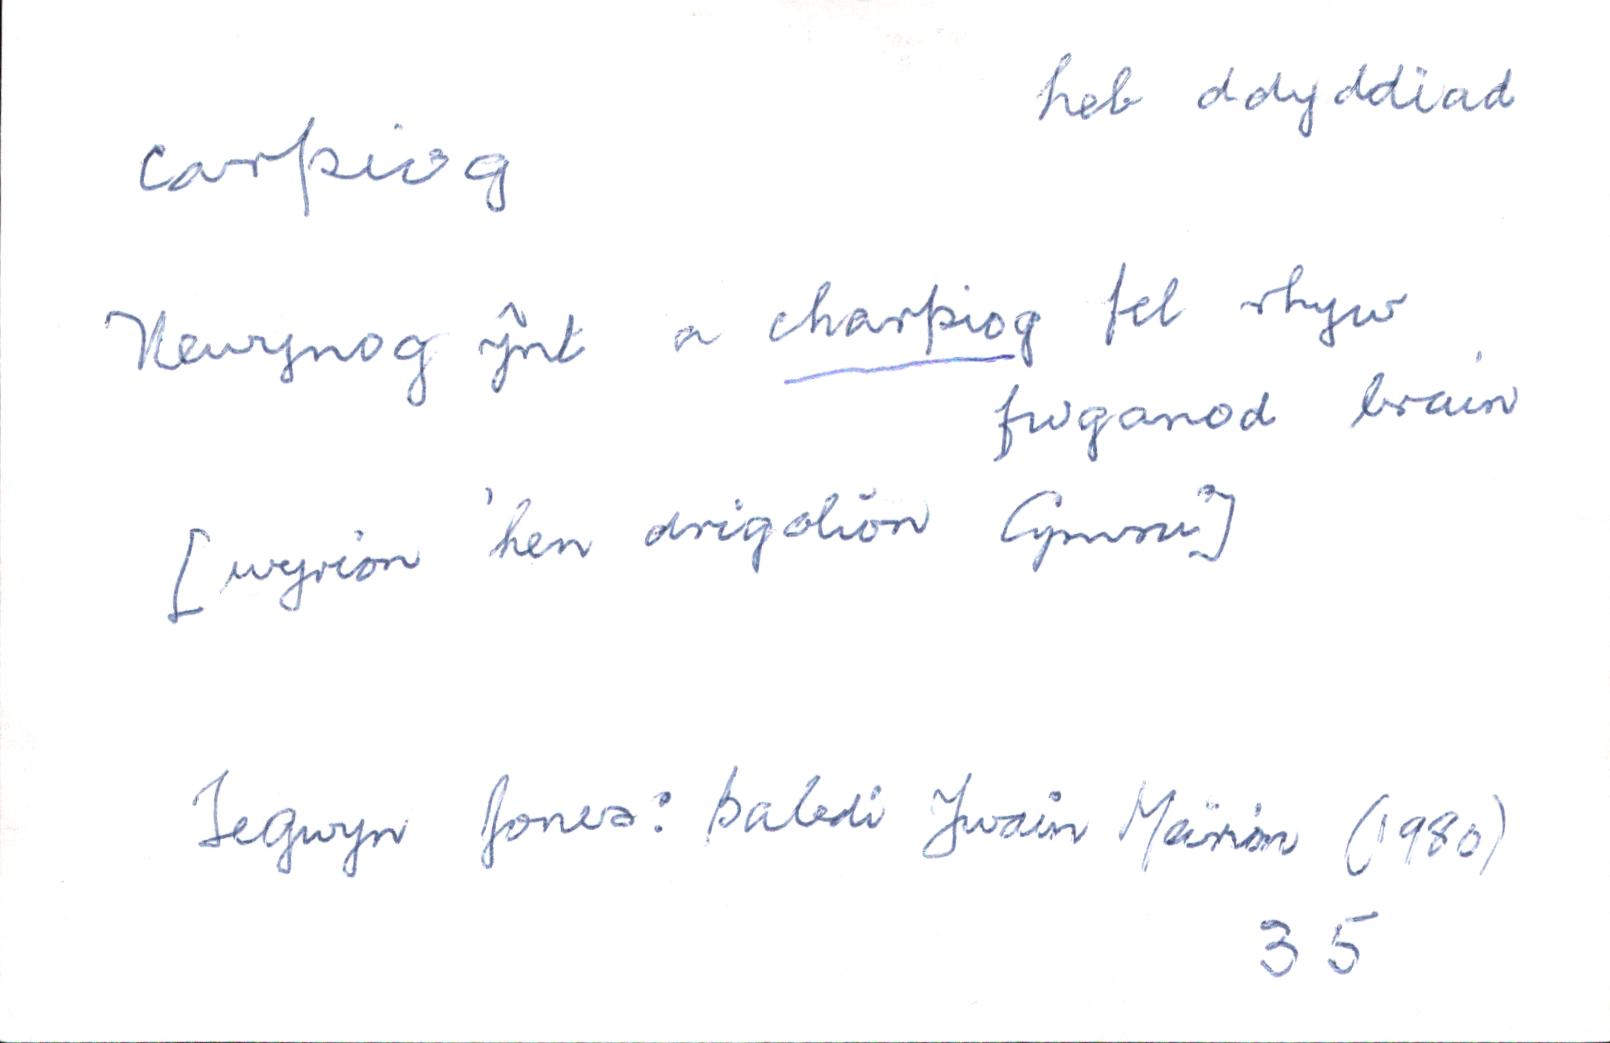 heb ddyddiad
carpiog
Newynog ŷnt a charpiog fel rhyw
fwganod brain
[wyrion 'hen drigolion Cymru']
Tegwyn Jones: Baledi Ywain Meirion (1980)
35